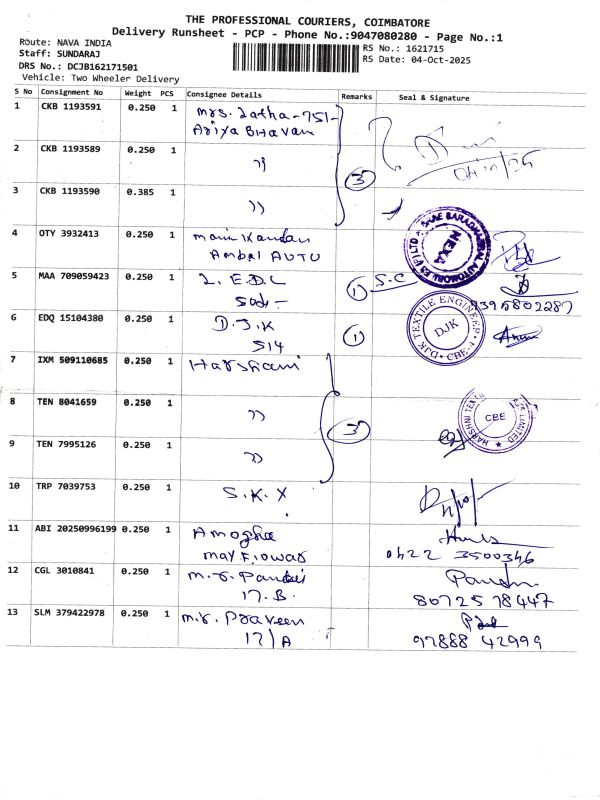 THE PROFESSIONAL COURIERS, COIMBATORE
Delivery Runsheet - PCP - Phone No.:9047080280 - Page No.:1
Route: NAVA INDIA
RS No.: 1621715
Staff: SUNDARAJ
RS Date: 04-Oct-2025
DRS No.: DCJB162171501
Vehicle: Two Wheeler Delivery
S No Consignment No Weight PCS Consignee Details Remarks Seal & Signature
1 CKB 1193591 0.250 1 Mrs. Latha-751-
Ariya Bhavan
2 CKB 1193589 0.250 1 〃
3 CKB 1193590 0.385 1 〃
3
4 OTY 3932413 0.250 1 Manikandan
Ambal AUTO
NEXA
5 MAA 709059423 0.250 1 2. E.D.C
1 S.C
6 EDQ 15104380 0.250 1 D.J.K
514
1
DJK TEXTILE ENGINEER
DJK
CBE
7 IXM 509110685 0.250 1 Harshani
8 TEN 8041659 0.250 1 〃
3
CBE
LIMITED
9 TEN 7995126 0.250 1 〃
10 TRP 7039753 0.250 1 S.K.X
11 ABI 20250996199 0.250 1 Amogha
may Flower
0422 3500346
12 CGL 3010841 0.250 1 M.r. Pandi
17.B.
80725 18447
13 SLM 379422978 0.250 1 M.r. Praveen
17/A
97888 42999